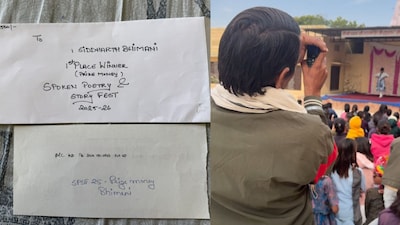 To
, SIDDHARTH BHIMANI
1st PLACE WINNER
(PRIZE MONEY)
SPOKEN POETRY &
STORY FEST
2025-26
SPSF 25 - Prize money
Bhimani